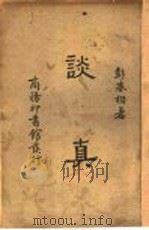 彭基相著
談真
商務印書館發行